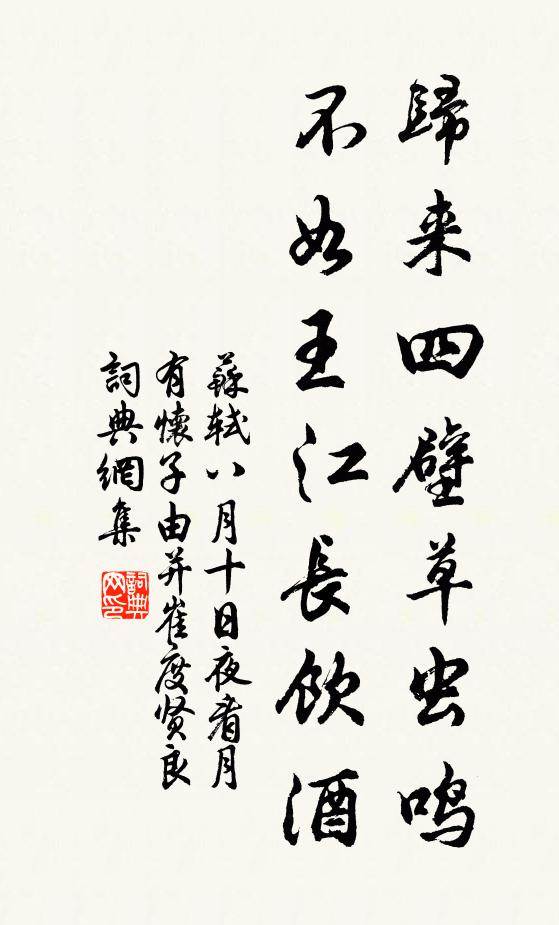 歸来四壁草虫鸣
不如王江長飲酒
蘇軾八月十日夜看月
有懷子由并崔度贤良
詞典網集
詞典网印